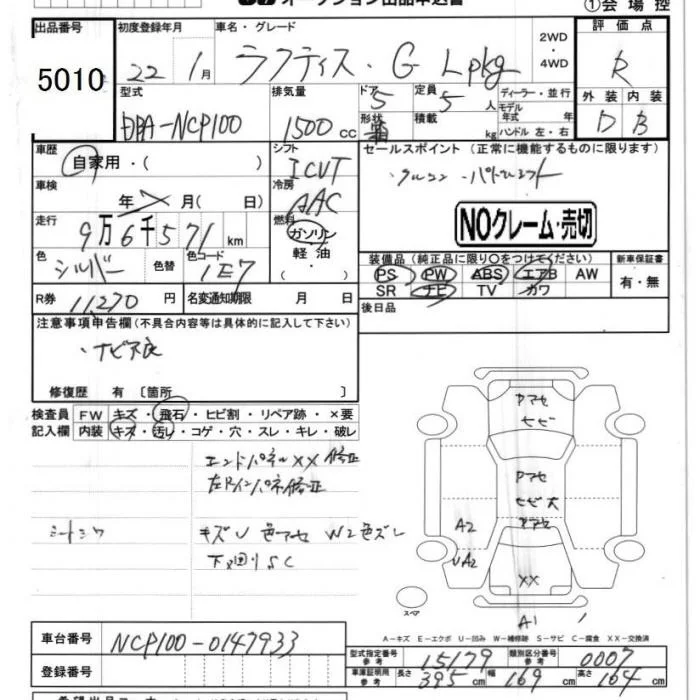 オークション出品申込書
①会場控
出品番号 初度登録年月 車名・グレード 2WD・4WD 評価点
5010 22 1月 ラクティス・G Lpkg R
型式 排気量 ドア 定員 ディーラー・並行 外装 内装
DBA-NCP100 1500cc 5 5人 モデル年式 年 D B
形状 積載 kg ハンドル 左・右
車歴 シフト セールスポイント(正常に機能するものに限ります)
自家用・( ) ICVT
車検 冷房
年 月( 日) AAC
NOクレーム・売切
走行 燃料
9万6千571km ガソリン・軽油・( )
色 色替 色コード 装備品(純正品に限り○をつけてください) 新車保証書
シルバー 1E7 PS PW ABS エアB AW 有・無
R券 11270円 名変通知期限 月 日 SR ナビ TV カワ
後日品
注意事項申告欄(不具合内容等は具体的に記入して下さい)
・ナビ不良
修復歴 有 〔箇所 〕
検査員 FW キズ・飛石・ヒビ割・リペア跡・×要
記入欄 内装 キズ・汚れ・コゲ・穴・スレ・キレ・破レ
エンドパネルXX修正
左Rインパネ修正
シートシワ キズU 色アセ W2色ズレ
下回りSC
Pアセ
ヒビ
Pアセ
ヒビ大
Pアセ
A2
UA2
XX
スペア
A1
A-キズ E-エクボ U-凹み W-補修跡 S-サビ C-腐食 XX-交換済
車台番号 NCP100-0147933 型式指定番号 参考 15179 類別区分番号 参考 0007
登録番号 車庫証明用 参考 長さ 395cm 幅 169cm 高さ 164cm
希望出品コーナー